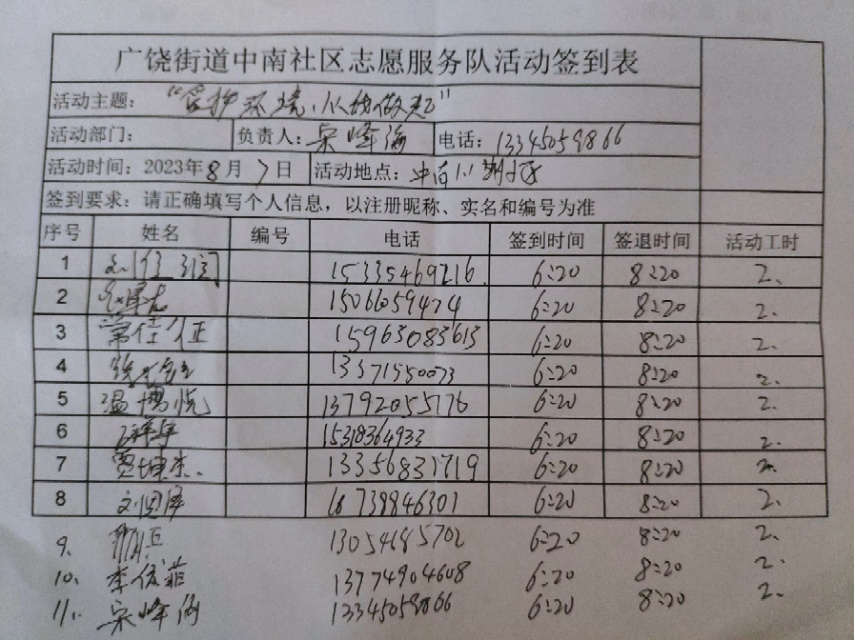 广饶街道中南社区志愿服务队活动签到表
活动主题：“爱护环境，从我做起”
活动部门： 负责人：宋峰海 电话：13345059866
活动时间：2023年8月7日 活动地点：中南
签到要求：请正确填写个人信息，以注册昵称、实名和编号为准
序号 姓名 编号 电话 签到时间 签退时间 活动工时
1 15335469216 6:20 8:20 2.
2 15066059474 6:20 8:20 2.
3 常佳 15963083613 6:20 8:20 2.
4 13371550073 6:20 8:20 2.
5 温博悦 13792055176 6:20 8:20 2.
6 15318364933 6:20 8:20 2.
7 贾坤杰 13356831719 6:20 8:20 2.
8 18739846301 6:20 8:20 2.
9. 13054685702 6:20 8:20 2.
10. 李俊菲 13774904608 6:20 8:20 2.
11. 宋峰海 13345059866 6:20 8:20 2.